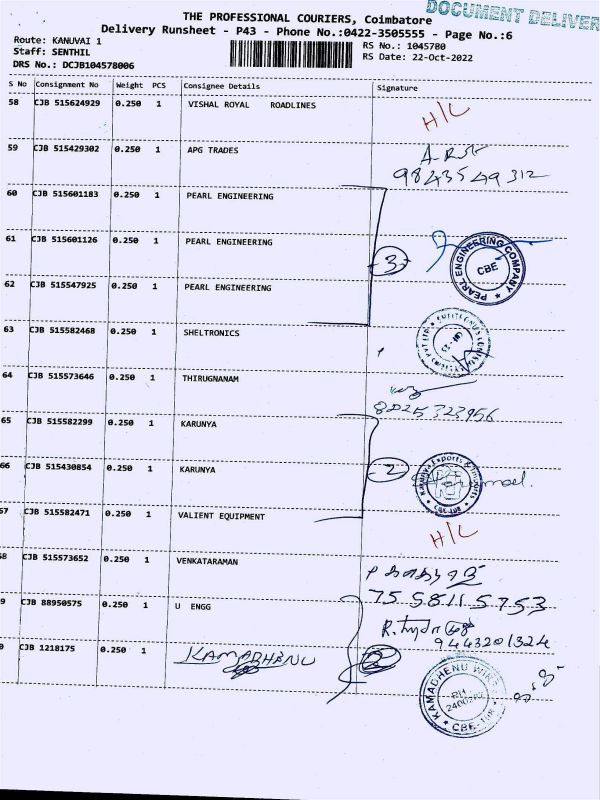 DOCUMENT DELIVER
THE PROFESSIONAL COURIERS, Coimbatore
Delivery Runsheet - P43 - Phone No.:0422-3505555 - Page No.:6
Route: KANUVAI 1
Staff: SENTHIL
DRS No.: DCJB104578006
RS No.: 1045780
RS Date: 22-Oct-2022
S No Consignment No Weight PCS Consignee Details Signature
58 CJB 515624929 0.250 1 VISHAL ROYAL ROADLINES H/L
59 CJB 515429302 0.250 1 APG TRADES
9843549312
60 CJB 515601183 0.250 1 PEARL ENGINEERING
61 CJB 515601126 0.250 1 PEARL ENGINEERING 3
PEARL ENGINEERING COMPANY CBE
62 CJB 515547925 0.250 1 PEARL ENGINEERING
63 CJB 515582468 0.250 1 SHELTRONICS
64 CJB 515573646 0.250 1 THIRUGNANAM
8825323956
65 CJB 515582299 0.250 1 KARUNYA
66 CJB 515430854 0.250 1 KARUNYA 2
Karunya Exports & Imports
57 CJB 515582471 0.250 1 VALIENT EQUIPMENT H/L
58 CJB 515573652 0.250 1 VENKATARAMAN
7558115753
9 CJB 88950575 0.250 1 U ENGG
9443201324
0 CJB 1218175 0.250 1 KAMADHENU 2
KAMADHENU WIRES
PH
CBE-108